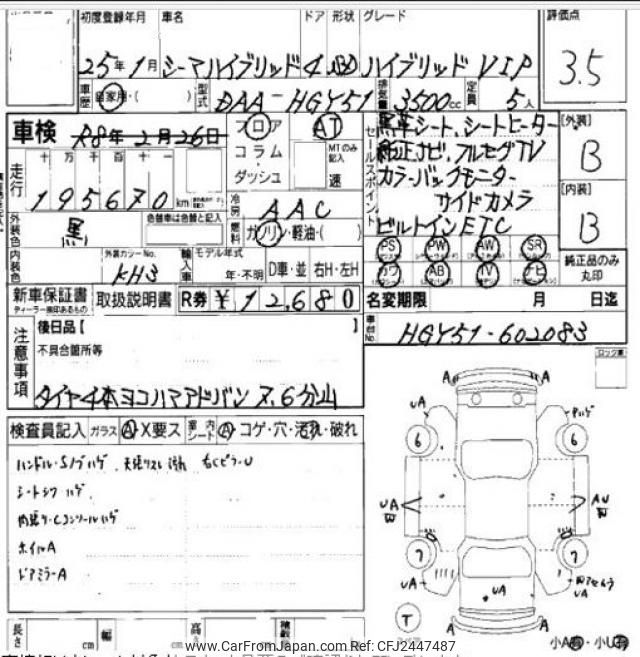 初度登録年月 車名 ドア 形状 グレード 評価点
25年1月 シーマハイブリッド 4.SD ハイブリッド VIP 3.5
車歴 自家用・( ) 型式 DAA-HGY51 排気量 3500cc 定員 5人
車検 R8年2月26日 フロア AT 黒革シート、シートヒーター [外装]
走行 十万千百十一 コラム MTのみ記入 セールスポイント 純正ナビ、フルセグTV B
195670km ダッシュ 速 カラーバックモニター [内装]
外装色 黒 色替車は色替と記入 冷房 AAC サイドカメラ B
燃料 ガソリン・軽油・( ) ビルトインETC
内装色 外装カラーNo. KH3 輸入車 モデル年式 年・不明 D車・並 右H・左H PS PW AW SR 純正品のみ丸印
カワ AB TV ナビ
新車保証書 取扱説明書 R券 ¥12,680 名変期限 月 日迄
ディーラー捺印あるもの
注意事項 後日品【 】 車台No. HGY51-602083
不具合箇所等
タイヤ4本ヨコハマアドバン 7.6分山
ロック置
検査員記入 ガラス A X要ス 室内シート A コゲ・穴・汚れ・破れ
ハンドル・Sノブハゲ
シートシワ ハゲ
ホイルA
ドアミラーA
A A
UA
6 6
UA
7 7
UA UA UA
T
A A
長さ cm 幅 cm 高さ cm 積載
小A 小U
www.CarFromJapan.com Ref: CFJ2447487